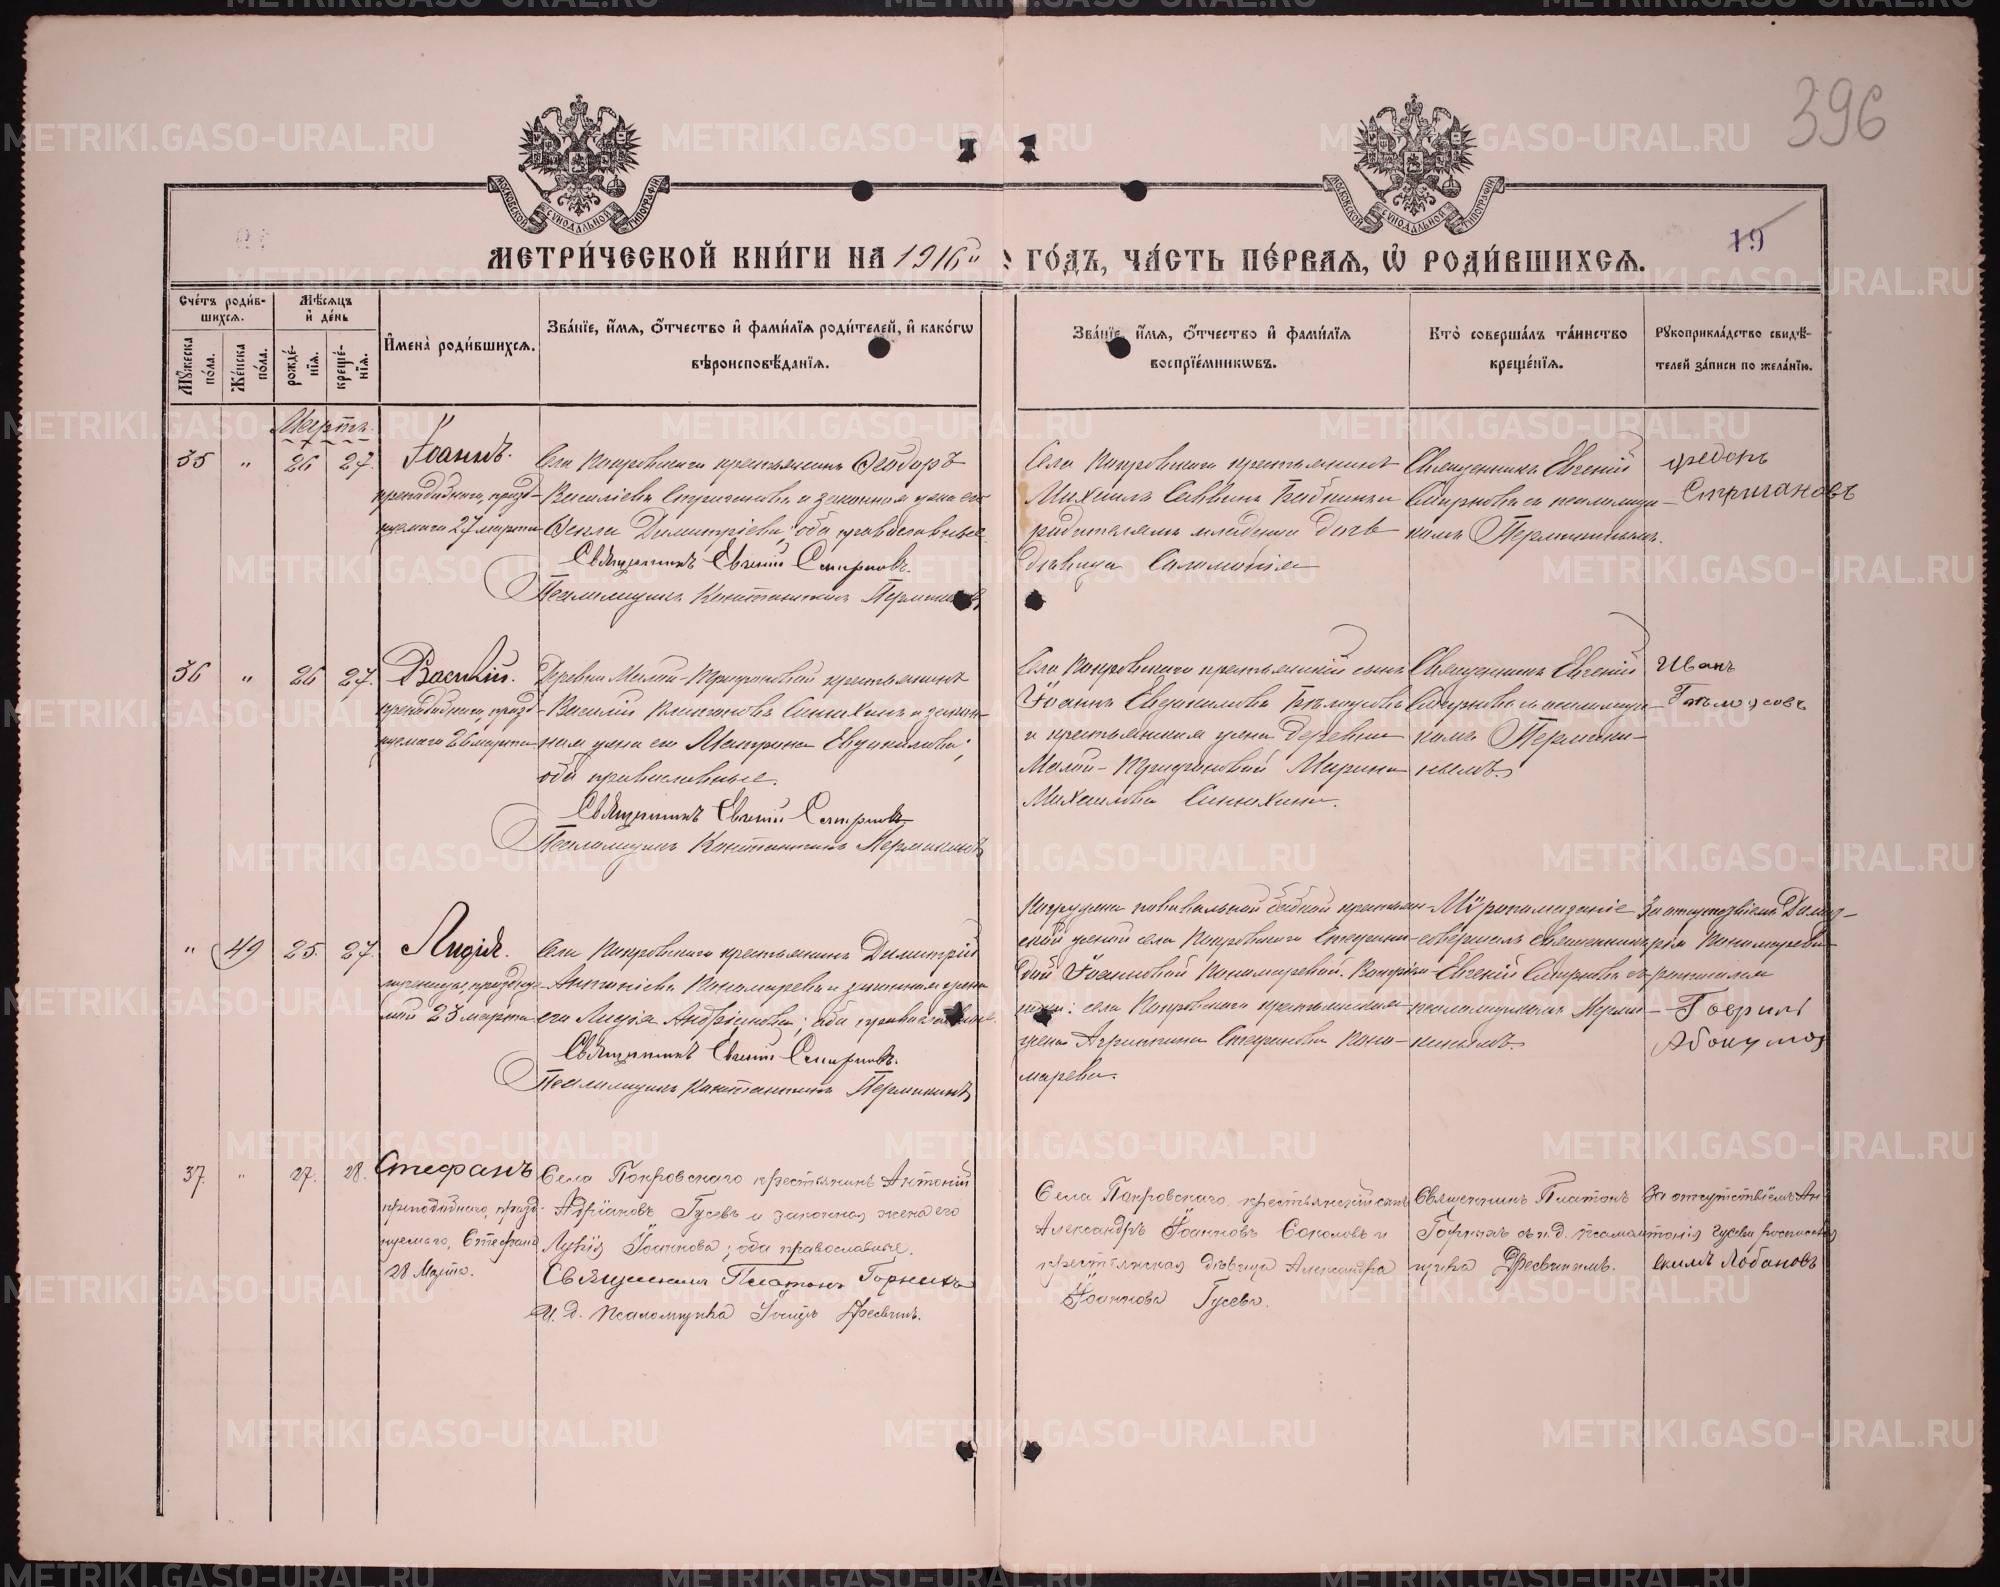 396
19
МЕТРИ́ЧЕСКОЙ КНИ́ГИ НА 1916 ГО́ДЪ, ЧА́СТЬ ПЕ́РВАЯ, Ѡ҆ РОДИ́ВШИХСЯ.
МОСКОВСКОЙ СѴНОДАЛЬНОЙ ТИПОГРАФІИ
МОСКОВСКОЙ СѴНОДАЛЬНОЙ ТИПОГРАФІИ
Счетъ родив-
шихся.
Мужеска пола.
Женска пола.
Мѣсяцъ и день
рожде-
нія.
креще-
нія.
Имена родившихся.
Званіе, имя, отчество и фамилія родителей, и какогѡ
вѣроисповѣданія.
Званіе, имя, отчество и фамилія
воспріемникѡвъ.
Кто совершалъ таинство
крещенія.
Рукоприкладство свидѣ-
телей записи по желанію.
Мартъ.
35 " 26 27.
Іоаннъ.
преподобнаго, празд-
нуемаго 27 марта
Села Покровскаго крестьянинъ Ѳеодоръ
Васильевъ Стригановъ и законная жена его
Ѳекла Димитріева; оба православные.
Священникъ Евгеній Смирновъ.
Псаломщикъ Константинъ Пермикинъ
Села Покровскаго крестьянинъ
Михаилъ Саввинъ
дѣвица Соломонія
Священникъ Евгеній
Смирновъ съ псаломщи-
комъ Пермикинымъ.
Федотъ
Стригановъ
36 " 26 27.
Василій.
преподобнаго, празд-
нуемаго 26 марта
Деревни Малой-Кривоновой крестьянинъ
Василій Синихинъ и закон-
ная жена его Матрона Евдокимова;
оба православные.
Священникъ Евгеній Смирновъ
Псаломщикъ Константинъ Пермикинъ
Села Покровскаго крестьянскій сынъ
Іоаннъ Евдокимовъ Бѣлоусовъ
и крестьянская жена деревни
Малой- Марина
Михаилова Синихина.
Священникъ Евгеній
Смирновъ съ псаломщи-
комъ Пермики-
нымъ.
Иванъ
" 49 25. 27.
Лидія.
мученицы, празднуе-
мой 23 марта
Села Покровскаго крестьянинъ Димитрій
Антоніевъ Пономаревъ и законная жена
его Лидія Андріанова; оба православные.
Священникъ Евгеній Смирновъ.
Псаломщикъ Константинъ Пермикинъ
Погружена повивальной бабкой крестьян-
ской женой села Покровскаго Стефани-
дой Іоанновой Пономаревой. Воспріем-
ники: села Покровскаго крестьянская
жена Агриппина Стефанова Поно-
марева.
Мѵропомазаніе
совершалъ священникъ
Евгеній Смирновъ съ
псаломщикомъ Перми-
кинымъ.
За отсутствіемъ Димит-
рія Пономарева
росписался
Гаврилъ
Абакумов
37. " 27. 28.
Стефанъ
преподобнаго, празд-
нуемаго, Стефана
28 Марта.
Села Покровскаго крестьянинъ Антоній
Адріановъ Гусевъ и законная жена его
Лукія Іоаннова; оба православные.
Священникъ Платонъ Горныхъ
И. д. псаломщика Іоаннъ Дресвинъ.
Села Покровскаго крестьянскій сынъ
Александръ Іоанновъ Соколовъ и
крестьянская дѣвица Александра
Іоаннова Гусева.
Священникъ Платонъ
Горныхъ съ и. д. псалом-
щика Дресвинымъ.
За отсутствіемъ Ан-
тонія Гусева росписался
Екимъ Лобановъ
METRIKI.GASO-URAL.RU